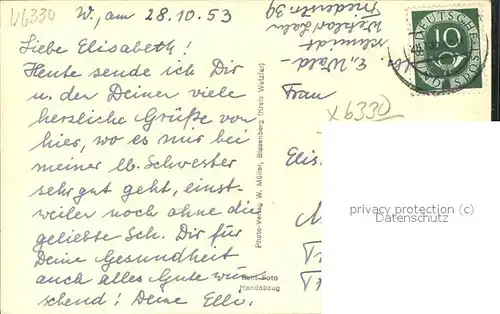 V6330
W., am 28.10.53
Liebe Elisabeth!
Heute sende ich Dir
u. der Deiner viele
herzliche Grüße von
hier, wo es mir bei
meiner lb. Schwester
sehr gut geht, einst-
weiler noch ohne die
geliebte Sch. Dir für
Deine Gesundheit
auch alles Gute wün-
schend! Deine Elli.
Photo-Verlag W. Müller, Biesenberg (Kreis Wetzlar)
Echt-Foto
Handabzug
E. Wald-
schmidt
Wetzlar/Lahn
39
DEUTSCHE
10
BUNDESPOST
Frau
x6330
Elis
privacy protection (c)
Datenschutz